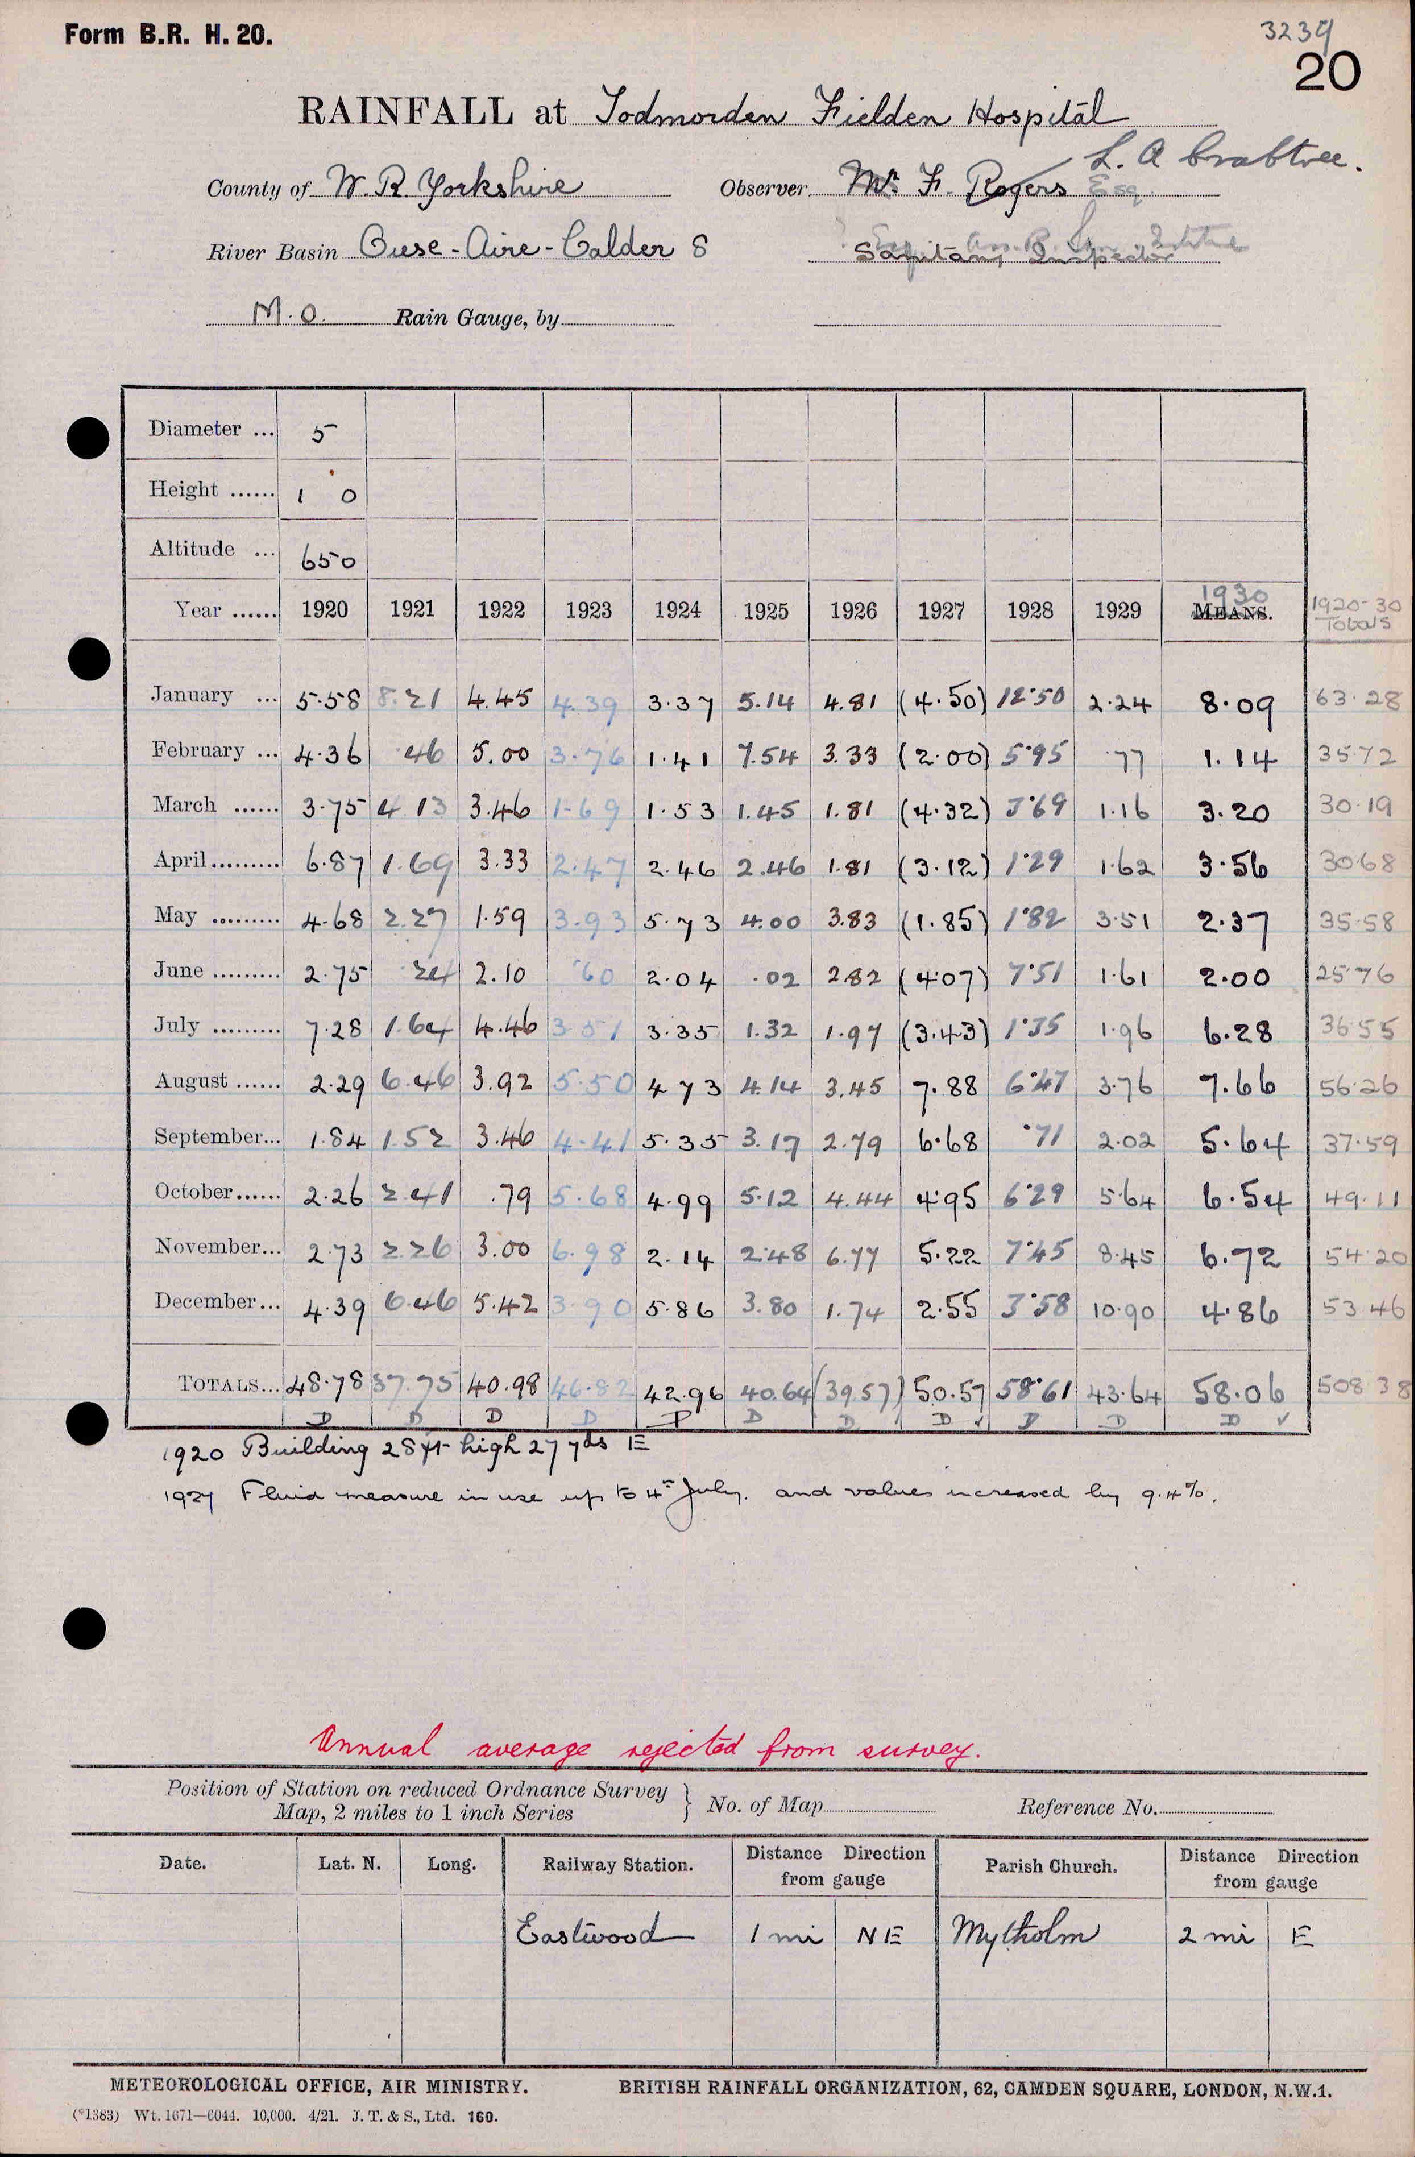 Form B.R. H. 20.
3239
20
RAINFALL at Todmorden Fielden Hospital
L. A Crabtree.
County of W. R. Yorkshire Observer Mr. F. Rogers Esq
River Basin Ouse - Aire - Calder 8 Sanitary Inspector
M.O. Rain Gauge, by
Diameter ... 5
Height ...... 1 0
Altitude ... 650
Year ...... 1920 1921 1922 1923 1924 1925 1926 1927 1928 1929 MEANS. 1930 1920-30 Totals
January ... 5.58 8.21 4.45 4.39 3.37 5.14 4.81 (4.50) 12.50 2.24 8.09 63.28
February ... 4.36 .46 5.00 3.76 1.41 7.54 3.33 (2.00) 5.95 .77 1.14 35.72
March ...... 3.75 4.13 3.46 1.69 1.53 1.45 1.81 (4.32) 3.69 1.16 3.20 30.19
April......... 6.87 1.69 3.33 2.47 2.46 2.46 1.81 (3.12) 1.29 1.62 3.56 30.68
May ......... 4.68 2.27 1.59 3.93 5.73 4.00 3.83 (1.85) 1.82 3.51 2.37 35.58
June ......... 2.75 .24 2.10 .60 2.04 .02 2.82 (4.07) 7.51 1.61 2.00 25.76
July ......... 7.28 1.64 4.46 3.51 3.35 1.32 1.97 (3.43) 1.35 1.96 6.28 36.55
August ...... 2.29 6.46 3.92 5.50 4.73 4.14 3.45 7.88 6.47 3.76 7.66 56.26
September... 1.84 1.52 3.46 4.41 5.35 3.17 2.79 6.68 .71 2.02 5.64 37.59
October...... 2.26 2.41 .79 5.68 4.99 5.12 4.44 4.95 6.29 5.64 6.54 49.11
November... 2.73 2.26 3.00 6.98 2.14 2.48 6.77 5.22 7.45 8.45 6.72 54.20
December... 4.39 6.46 5.42 3.90 5.86 3.80 1.74 2.55 3.58 10.90 4.86 53.46
TOTALS... 48.78 37.75 40.98 46.82 42.96 40.64 (39.57) 50.57 58.61 43.64 58.06 508.38
D D D D P D D D ✓ D D D ✓
1920 Building 28 ft high 27 yds E
1927 Fluid measure in use up to 4th July. and values increased by 9.4%.
Annual average rejected from survey.
Position of Station on reduced Ordnance Survey Map, 2 miles to 1 inch Series } No. of Map Reference No.
Date. Lat. N. Long. Railway Station. Distance Direction from gauge Parish Church. Distance Direction from gauge
Eastwood 1 mi NE Mytholm 2 mi E
METEOROLOGICAL OFFICE, AIR MINISTRY. BRITISH RAINFALL ORGANIZATION, 62, CAMDEN SQUARE, LONDON, N.W.1.
(*1383) Wt. 1671—6044. 10,000. 4/21. J. T. & S., Ltd. 160.